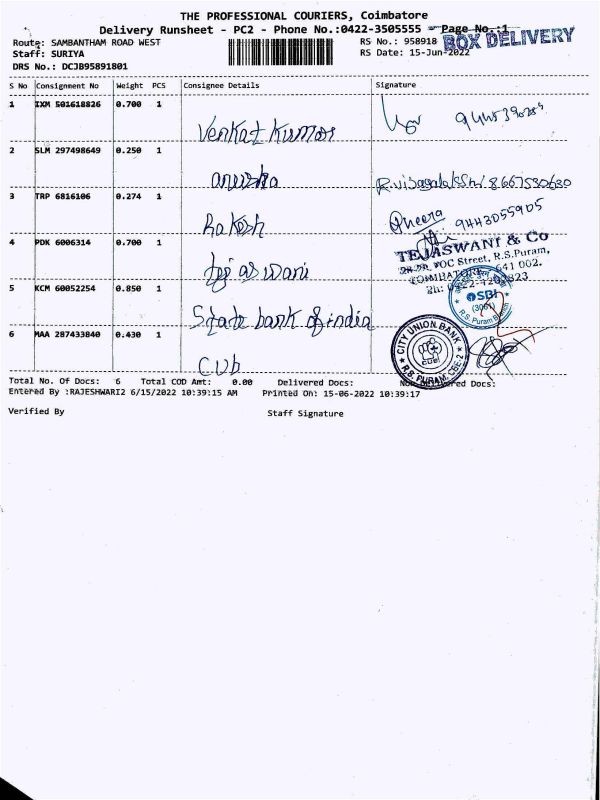 THE PROFESSIONAL COURIERS, Coimbatore
Delivery Runsheet - PC2 - Phone No.:0422-3505555 - Page No.:1
BOX DELIVERY
Route: SAMBANTHAM ROAD WEST
RS No.: 958918
Staff: SURIYA
RS Date: 15-Jun-2022
DRS No.: DCJB95891801
S No Consignment No Weight PCS Consignee Details Signature
1 IXM 501618826 0.700 1
Venkat Kumar
2 SLM 297498649 0.250 1
anusha R.vijayalakshmi 8667530680
3 TRP 6816106 0.274 1
Rakesh Qneera 9443055905
4 PDK 6006314 0.700 1
tejaswani
TEJASWANI & Co
VOC Street, R.S.Puram,
COIMBATORE 641 002.
5 KCM 60052254 0.850 1
State bank of india
SBI
R.S. Puram Branch
6 MAA 287433840 0.430 1
CUb
CITY UNION BANK
CUB
R.S. PURAM, CBE-2
Total No. Of Docs: 6 Total COD Amt: 0.00 Delivered Docs: Non Delivered Docs:
Entered By :RAJESHWARI2 6/15/2022 10:39:15 AM Printed On: 15-06-2022 10:39:17
Verified By Staff Signature